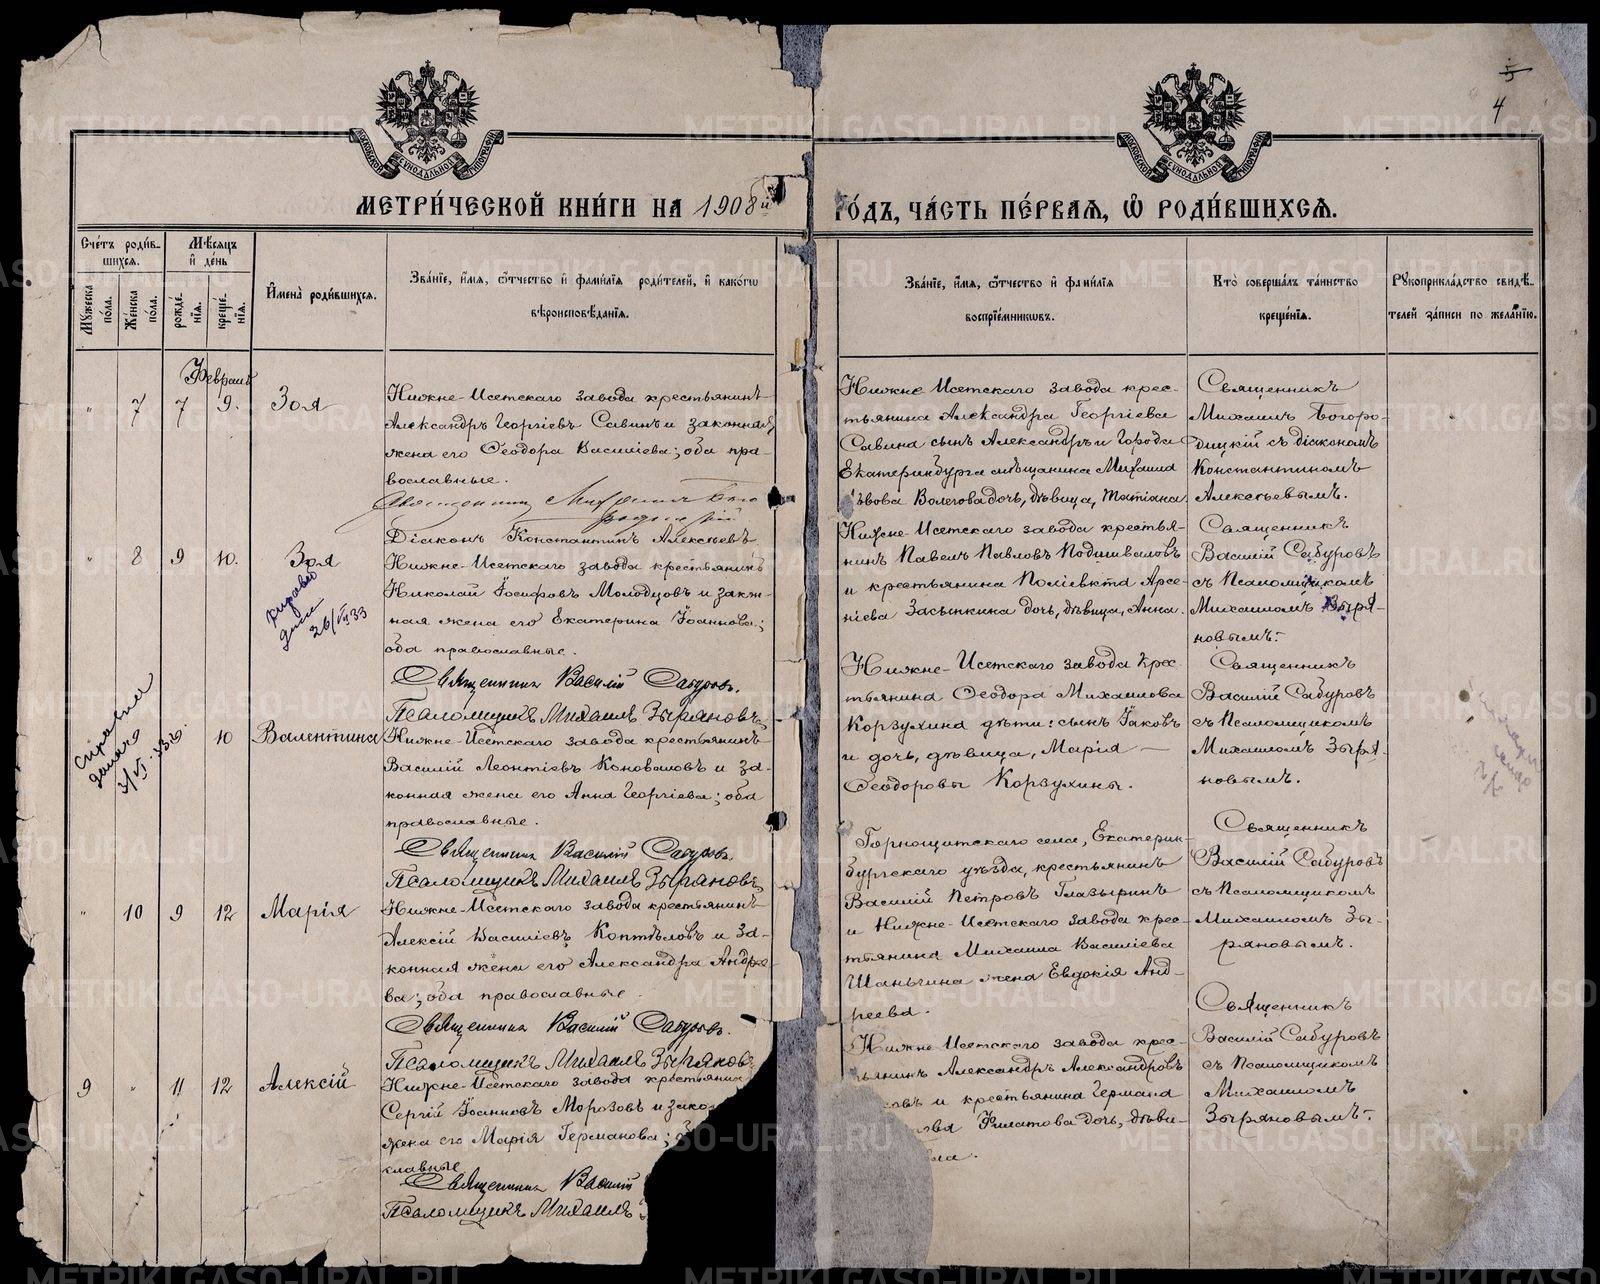 5
4
МЕТРИ́ЧЕСКОЙ КНИ́ГИ НА 1908й ГО́ДЪ, ЧА́СТЬ ПЕ́РВАЯ, Ѡ РОДИ́ВШИХСЯ.
Сче́тъ роди́в-
шихся.
Мꙋ́жеска пола.
Же́нска пола.
Мѣ́сяцъ
и҆ де́нь
рожде́-
нїя.
креще́-
нїя.
И҆мена̀ роди́вшихся.
Зва́нїе, и҆́мя, ѻ҆́тчество и҆ фами́лїя роди́телей, и҆ како́гѡ
вѣроисповѣ́данїя.
Зва́нїе, и҆́мя, ѻ҆́тчество и҆ фами́лїя
воспрїе́мникѡвъ.
Кто̀ соверша́лъ та́инство
креще́нїя.
Рꙋкоприкла́дство свидѣ́-
телей за́писи по жела́нїю.
Февраль
" 7 7 9. Зоя
Нижне-Исетскаго завода крестьянинъ
Александръ Георгіевъ Савинъ и законная
жена его Ѳеодора Василіева; оба пра-
вославные.
Священникъ Михаилъ Бого
родицкій
Діаконъ Константинъ Алексѣевъ
Нижне Исетскаго завода крес-
тьянина Александра Георгіева
Савина сынъ Александръ и города
Екатеринбурга мѣщанина Михаила
Львова Волегова дочь, дѣвица, Татіана.
Священникъ
Михаилъ Богоро-
дицкій съ діакономъ
Константиномъ
Алексѣевымъ.
" 8 9 10. Зоя
26/VI 33
Нижне-Исетскаго завода крестьянинъ
Николай Іосифовъ Молодцовъ и закон-
ная жена его Екатерина Іоаннова;
оба православные.
Священникъ Василій Сабуровъ.
Псаломщикъ Михаилъ Зыряновъ
Нижне-Исетскаго завода крестья-
нинъ Павелъ Павловъ Подшиваловъ
и крестьянина Поліевкта Арсе-
ніева Засыпкина дочь, дѣвица, Анна.
Священникъ
Василій Сабуровъ
съ Псаломщикомъ
Михаиломъ Зыря-
новымъ.
Справка
10 Валентина
Нижне-Исетскаго завода крестьянинъ
Василій Леонтіевъ Коноваловъ и за-
конная жена его Анна Георгіева; оба
православные.
Священникъ Василій Сабуровъ.
Псаломщикъ Михаилъ Зыряновъ
Нижне-Исетскаго завода крес-
тьянина Ѳеодора Михаилова
Корзухина дѣти: сынъ Іаковъ
и дочь, дѣвица, Марія —
Ѳеодоровы Корзухины.
Священникъ
Василій Сабуровъ
съ Псаломщикомъ
Михаиломъ Зыря-
новымъ.
" 10 9 12 Марія
Нижне-Исетскаго завода крестьянинъ
Алексій Василіевъ Коптѣловъ и за-
конная жена его Александра Андрее
ва; оба православные.
Священникъ Василій Сабуровъ.
Псаломщикъ Михаилъ Зыряновъ
Горнощитскаго села, Екатерин-
бургскаго уѣзда, крестьянинъ
Василій Петровъ Глазыринъ
и Нижне-Исетскаго завода крес-
тьянина Михаила Василіева
Шаньгина жена Евдокія Анд-
реева.
Священникъ
Василій Сабуровъ
съ Псаломщикомъ
Михаиломъ Зы-
ряновымъ.
9 " 11 12 Алексій
Нижне-Исетскаго завода крестьянин
Сергій Іоанновъ Морозовъ и зако
жена его Марія Германова;
славные
Священникъ Василій
Псаломщикъ Михаилъ
Нижне-Исетскаго завода крес-
тьянинъ Александръ Александровъ
овъ и крестьянина Германа
Филатова дочь, дѣви-
Священникъ
Василій Сабуровъ
съ Псаломщикомъ
Михаиломъ
Зыряновымъ.
METRIKI.GASO-URAL.RU